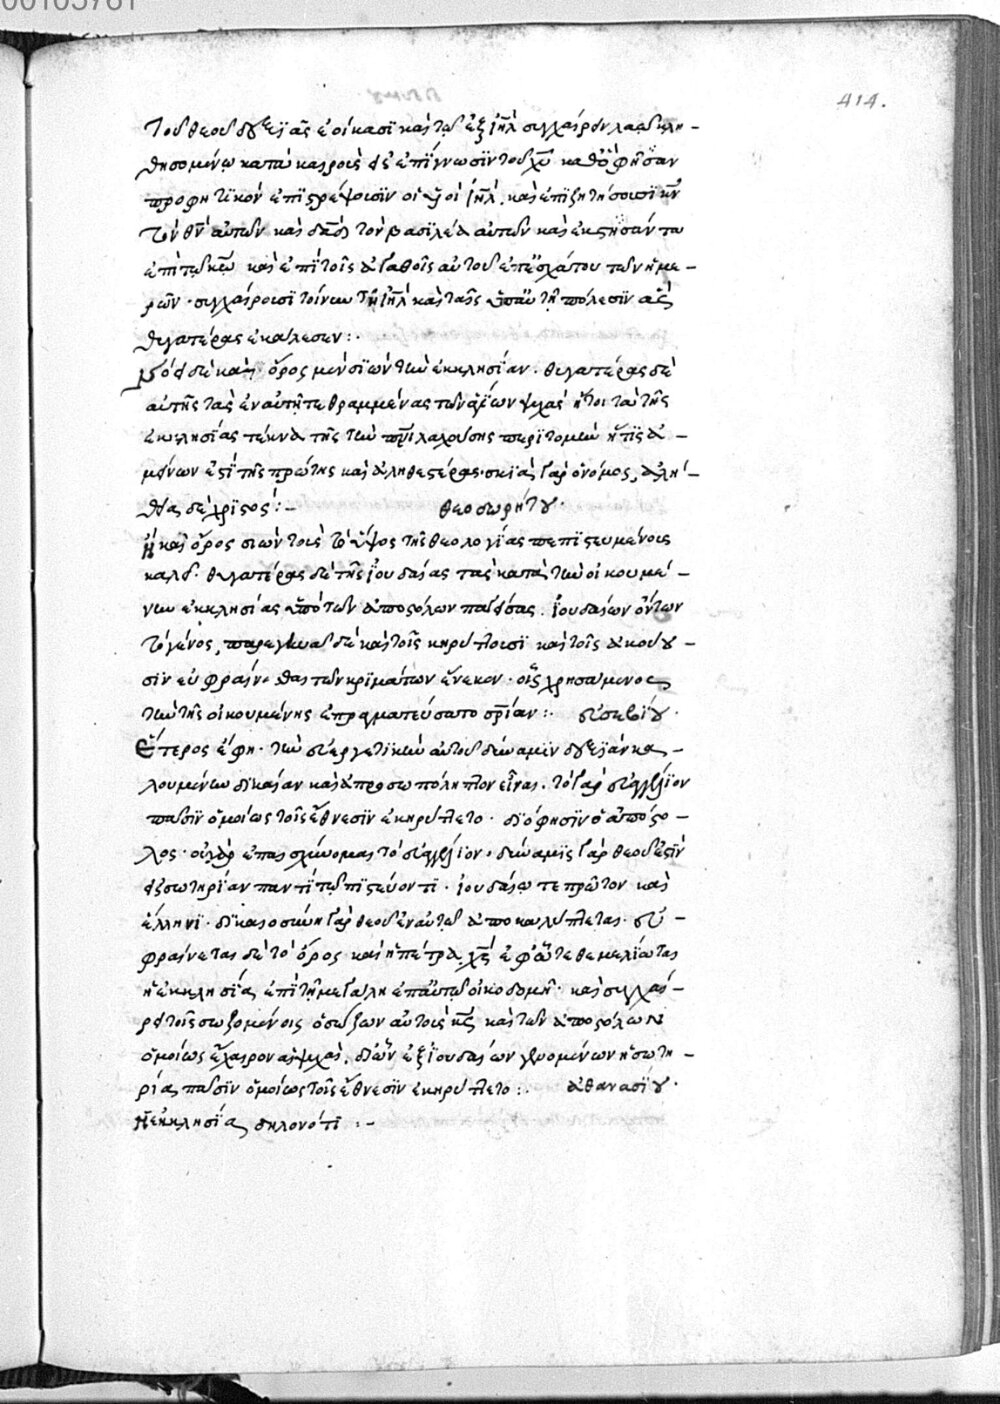 00103761
414.
τοῦ θεοῦ δουλείας ἐοίκασι καὶ τῷ ἐξ ἰη̅λ συγχαίρειν λαῷ κλη-
θησομένῳ κατὰ καιροὺς εἰς ἐπίγνωσιν τοῦ χυ̅ καθὸ φησὶν
προφητικὸν ἐπιστρέψουσιν οἱ υἱοὶ ἰη̅λ, καὶ ἐπιζητήσουσι κν̅
τὸν θν̅ αὐτῶν καὶ δα̅δ τὸν βασιλέα αὐτῶν καὶ ἐκστήσονται
ἐπὶ τῷ κω̅ καὶ ἐπὶ τοῖς ἀγαθοῖς αὐτοῦ ἐπ' ἐσχάτου τῶν ἡμε-
ρῶν· συγχαίρουσι τοίνυν τῇ ἰη̅λ καὶ ταῖς ὑπ' αὐτὴν πόλεσιν ἃς
θυγατέρας ἐκάλεσεν:·
ὄρος μὲν σιὼν τὴν ἐκκλησίαν· θυγατέρας δὲ
αὐτῆς τὰς ἐν αὐτῇ τεθραμμένας τῶν ἁγίων ψυχὰς ἤτοι τὰ τῆς
ἐκκλησίας τέκνα τῆς τὴν πνι̅ λαχούσης περιτομὴν ἥτις ἀ-
μείνων ἐστὶ τῆς πρώτης καὶ ἀληθεστέρας· σκιὰ γὰρ ὁ νόμος, ἀλή-
θεια δὲ χριστός:-
θεοδωρήτου·
ἢ καὶ ὄρος σιὼν τοὺς τὸ ὕψος τῆς θεολογίας πεπιστευμένους
καλεῖ· θυγατέρας δὲ τῆς ἰουδαίας τὰς κατὰ τὴν οἰκουμέ-
νην ἐκκλησίας ὑπὸ τῶν ἀποστόλων παρ ἰουδαίων ὄντων
τὸ γένος, παρεγγυᾷ δὲ καὶ τοῖς κηρύττουσι καὶ τοῖς ἀκούου-
σιν εὐφραίνεσθαι τῶν κριμάτων ἕνεκεν· οἷς χρησάμενος
τὴν τῆς οἰκουμένης ἐπραγματεύσατο σρίαν:·
εὐσεβίου·
ἕτερος ἔφη· τὴν εὐεργετικὴν αὐτοῦ δύναμιν δουλείαν κα-
λουμένην δικαίαν καὶ ἀπροσωπόληπτον εἶναι. τὸ γὰρ εὐαγγέλιον
πᾶσιν ὁμοίως τοῖς ἔθνεσιν ἐκηρύττετο· διό φησιν ὁ ἀπόστο-
λος· οὐ γὰρ ἐπαισχύνομαι τὸ εὐαγγέλιον· δύναμις γὰρ θεοῦ ἐστὶν
εἰς σωτηρίαν παντὶ τῷ πιστεύοντι· ἰουδαίῳ τε πρῶτον καὶ
ἕλληνι· δικαιοσύνη γὰρ θεοῦ ἐν αὐτῷ ἀποκαλύπτεται· εὐ-
φραίνεται δὲ τὸ ὄρος καὶ ἡ πέτρα χς̅ ἐφ' ᾧ τεθεμελίωται
ἡ ἐκκλησία ἐπὶ τῇ μεγάλῃ ἐπ' αὐτῷ οἰκοδομῇ· καὶ συγχαί-
ρει τοῖς σωζομένοις ὁ σώζων αὐτοὺς κς̅ καὶ τῶν ἀποστόλων
ὁμοίως ἔχαιρον αἱ ψυχαὶ. δι' ὧν ἐξ ἰουδαίων γενομένων ἡ σωτη-
ρία πᾶσιν ὁμοίως τοῖς ἔθνεσιν ἐκηρύττετο:·
ἀθανασίου·
ἡ ἐκκλησία δηλονότι:-